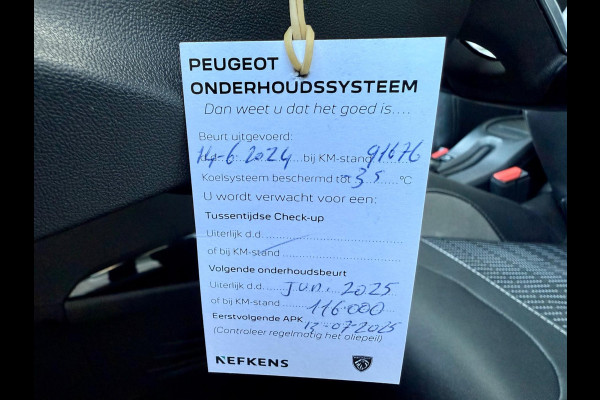 PEUGEOT
ONDERHOUDSSYSTEEM
Dan weet u dat het goed is....
Beurt uitgevoerd:
14-6-2024 bij KM-stand 91676
Koelsysteem beschermd tot -35 °C
U wordt verwacht voor een:
Tussentijdse Check-up
Uiterlijk d.d.
of bij KM-stand
Volgende onderhoudsbeurt
Uiterlijk d.d. Juni 2025
of bij KM-stand 116.000
Eerstvolgende APK 12-07-2025
(Controleer regelmatig het oliepeil)
NEFKENS